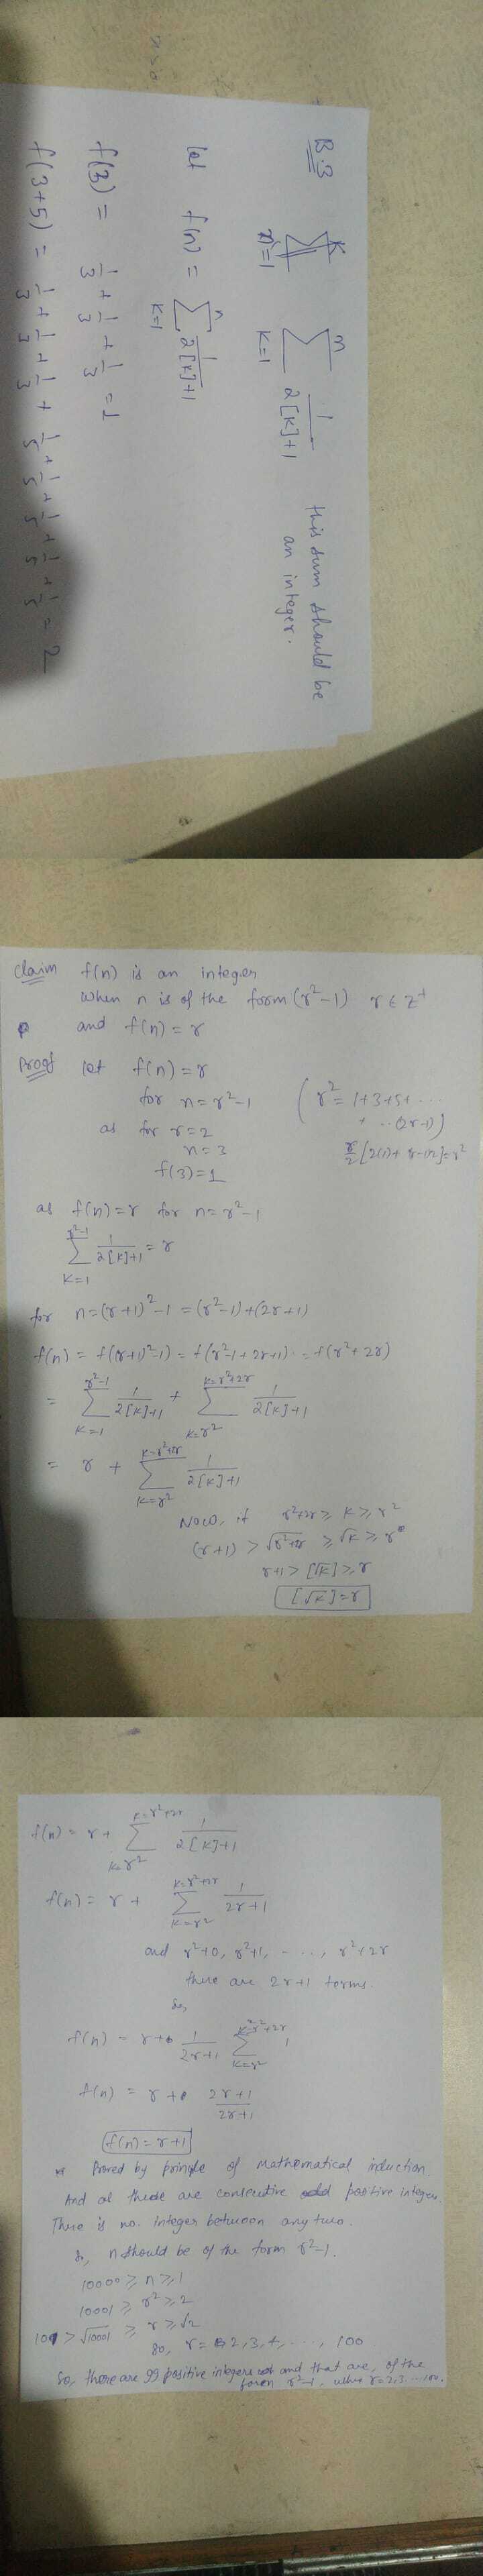 B.3
K
∑
n=1
n
∑ 1/(2[K]+1) this sum should be an integer.
K=1
let f(n) = n∑K=1 1/(2[K]+1)
f(3) = 1/3 + 1/3 + 1/3 = 1
f(3+5) = 1/3 + 1/3 + 1/3 + 1/5 + 1/5 + 1/5 + 1/5 + 1/5 = 2
Claim f(n) is an integer
when n is of the form (r²-1) r ∈ Z⁺
and f(n) = r
Proof let f(n) = r
for n = r²-1 ( r² = 1+3+5+ ....
as for r=2 + ..(2r-1))
n=3 r/2 [2(1)+ (r-1)2]=r²
f(3)=1
as f(n)=r for n=r²-1
r²-1∑K=1 1/(2[K]+1) = r
for n=(r+1)²-1 = (r²-1)+(2r+1)
f(n) = f((r+1)²-1) = f(r²-1+2r+1) = f(r²+2r)
= r²-1∑K=1 1/(2[K]+1) + K=r²+2r∑K=r² 1/(2[K]+1)
= r + K=r²+2r∑K=r² 1/(2[K]+1)
Now, if r²+2r ≥ K ≥ r²
(r+1) > √r²+2r ≥ √K ≥ r
r+1 > [√K] ≥ r
[√K]=r
f(n) = r + K=r²+2r∑K=r² 1/(2[K]+1)
f(n) = r + K=r²+2r∑K=r² 1/(2r+1)
and r²+0, r²+1, - ...., r²+2r
there are 2r+1 terms.
So,
f(n) = r + 1/(2r+1) K=r²+2r∑K=r² 1
f(n) = r + (2r+1)/(2r+1)
f(n) = r+1
Proved by principle of Mathematical induction.
And all these are consecutive positive integers.
There is no integer between any two.
So, n should be of the form r²-1.
10000 ≥ n ≥ 1
10001 ≥ r² ≥ 2
101 > √10001 ≥ r ≥ √2
So, r = 2,3,4, ...., 100
So, there are 99 positive integers and that are, of the
form r²-1, where r=2,3,...100.